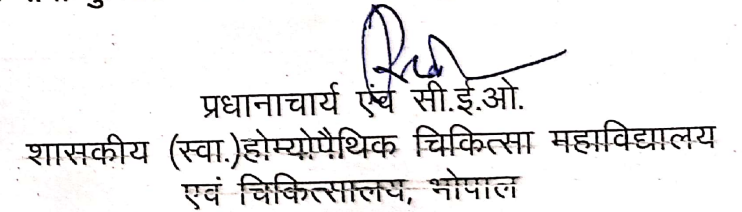 प्रधानाचार्य एंव सी.ई.ओ.
शासकीय (स्वा.)होम्योपैथिक चिकित्सा महाविद्यालय
एवं चिकित्सालय, भोपाल